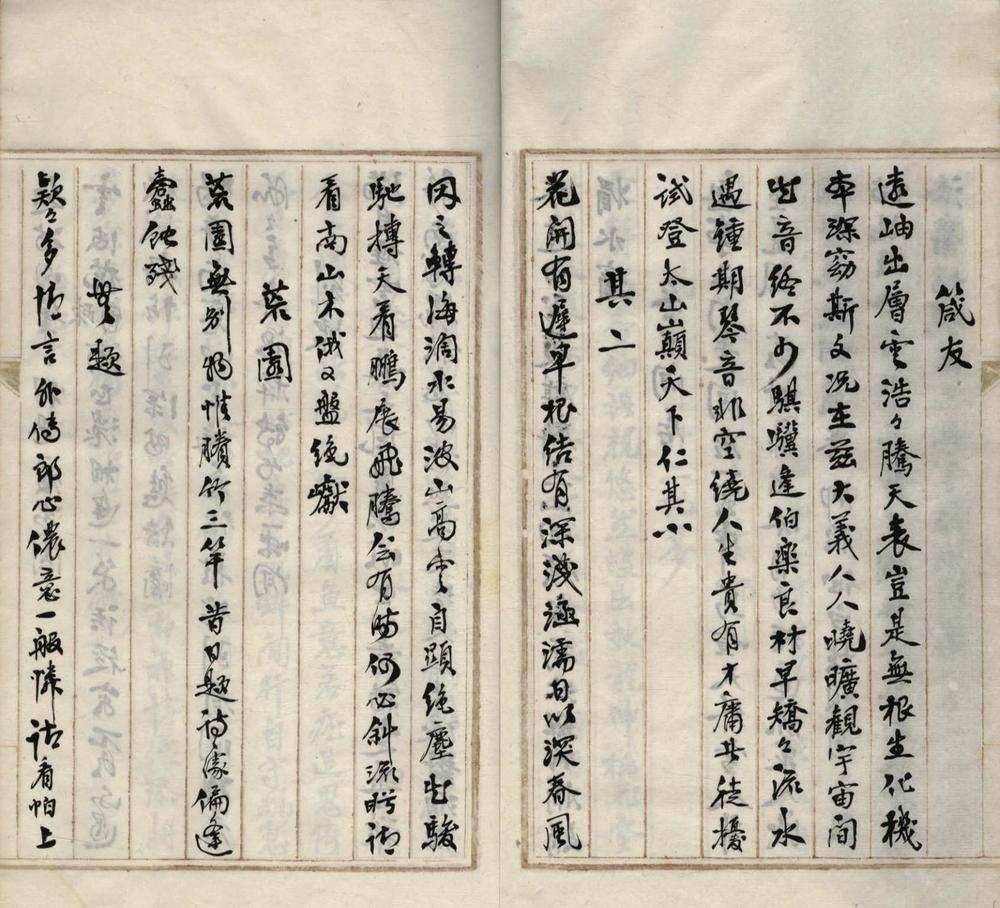 箴友
遠岫出層雲浩々騰天表豈是無根生化機
本深窈斯文况在茲大義人人曉曠觀宇宙間
出音終不少騏驥逢伯樂良材早矯々流水
遇鍾期琴音非空繞人生貴有才庸其徒擾
試登太山巔天下仁其小
其二
花開有遲早根结有深淺涵濡日以深春風
因之轉海濶水易波山高雲自顯絕塵出駿
馳搏天看鵬展飛騰会有時何必斜流眄請
看南山木俄々盤絕巘
荒園
荒園無别物惟賸竹三竿昔日題詩處偏逢
蠹蝕殘
無題
欵々多情言外傳郎心儂意一般憐請看帕上